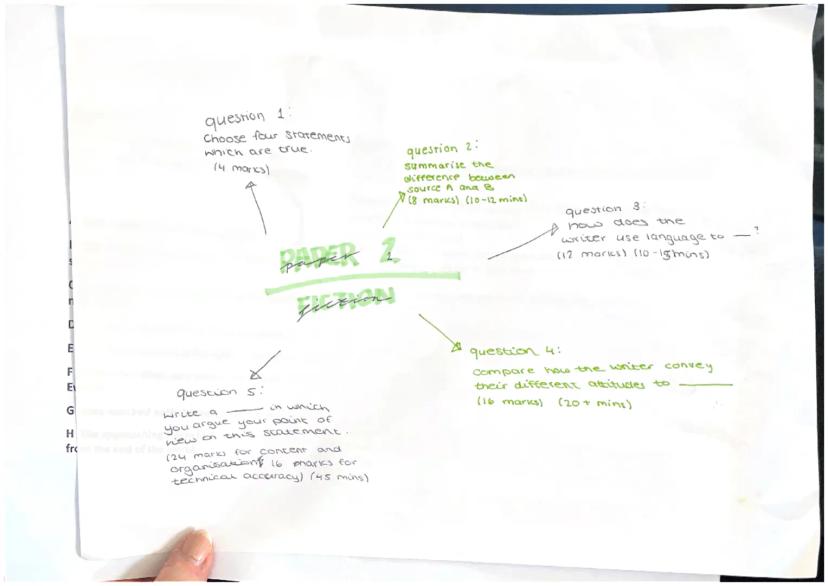 question 1:
Choose four statements
which are true.
(4 marks)
question 2:
summarise the
difference between
source A and B
(8 marks) (10-12 mins)
question 3:
how does the
writer use language to __?
(12 marks) (10-15 mins)
PAPER 2
paper 2
FICTION
fiction
question 4:
compare how the writer convey
their different attitudes to ____
(16 marks) (20+ mins)
question 5:
write a ___ in which
you argue your point of
view on this statement.
(24 marks for content and
organisation, 16 marks for
technical accuracy) (45 mins)
D
E
F
G
H